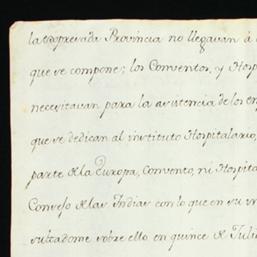 la expresada Provincia no llegavan á
que se compone; los Conventos, y Hosp
necesitavan para la asistencia de los en
que se dedican al instituto Hospitalario,
parte de la Europa, Convento, ni Hospita
Consejo de las Indias con lo que en su vi
sultadome sobre ello en quince de Juli